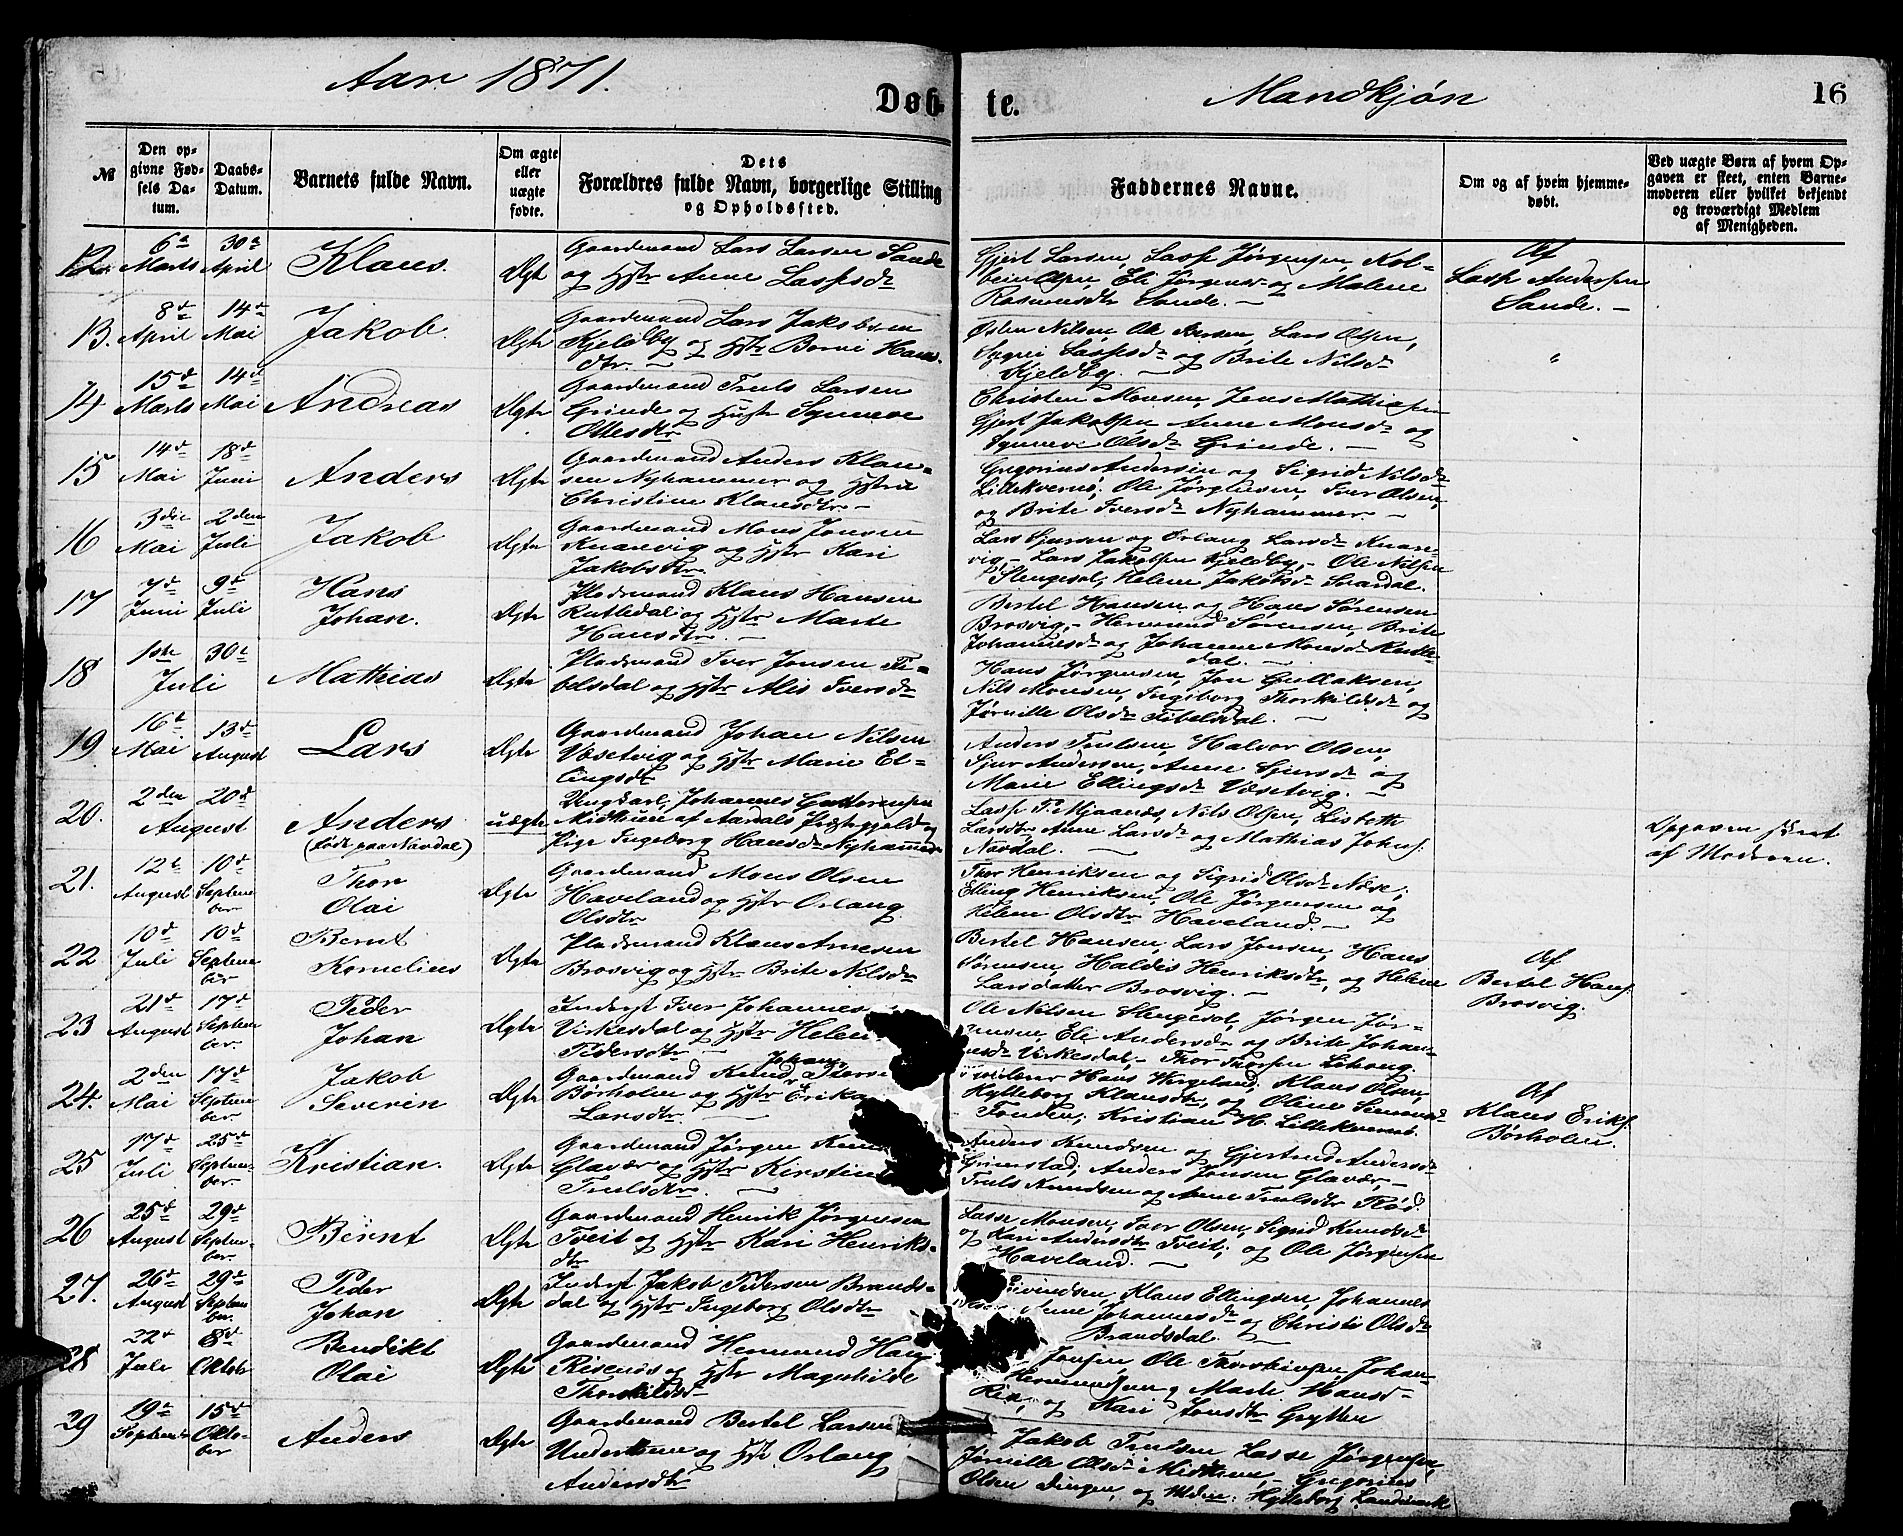 Aar 1871.
Døbte.
Mandkjøn
16
№
Den opgivne Fødsels Datum.
Daabs-Datum.
Barnets fulde Navn.
Om ægte eller uægte fødte.
Dets Forældres fulde Navn, borgerlige Stilling og Opholdssted.
Faddernes Navne.
Om og af hvem hjemmedøbt.
Ved uægte Børn af hvem Opgaven er skeet, enten Barnemoderen eller hvilket bekjendt og troværdigt Medlem af Menigheden.
12. 6te Marts 30te April Klaus. Ægte
Gaardmand Lars Larsen Sande
og Hstr Anne Lassesdr
Gjert Larsen, Lasse Jørgensen, Kol-
bein Olsen, Eli Jørgensdr og Malene
Rasmusdtr Sande. —
Af
Lasse Andersen
Sande. —
13. 8de April 14de Mai Jakob. Ægte
Gaardmand Lars Jakobsen
Kjeldby og Hstr Berni Hans-
dtr. —
Østen Nilsen, Ole Iversen, Lars Olsen,
Sygni Lassesdr og Brite Nilsdr
Kjeldby. —
"
14 15de Marts 14de Mai Andreas Ægte
Gaardmand Truls Larsen
Grinde og Hustr Synneve
Ottesdtr
Christen Monsen, Jens Mathiesen
Gjert Jakobsen, Anne Monsdr og
Synneve Olsdr Grinde. —
15 14de Mai 18de Juni Anders Ægte
Gaardmand Anders Klau-
sen Nyhammer og Hstru
Christine Klausdtr —
Gregorius Andersen og Sigrid Nilsdr
Lillekvernø; Ole Jørgensen, Iver Olsen,
og Brite Iversdr Nyhammer. —
16 3die Mai 2den Juli Jakob Ægte
Gaardmand Mons Jonsen
Knarvig og Hstr Kari
Jakobsdtr.
Lars Sjursen og Orlaug Larsdr Knar-
vig, — Lars Jakobsen Kjeldby, — Ole Nilsen
Slengesol, Helene Jakobsdr
17 7de Juni 9de Juli Hans
Johan. Ægte
Pladsmand Klaus Hansen
Rutledal og Hstr Marte
Hansdtr. —
Bertel Hansen og Hans Sørensen
Brosvig, — Hermund Sørensen, Brite
Johannesdr og Johanne Monsdr Rutle-
dal. —
18 1ste 30te
Juli Mathias Ægte
Pladsmand Iver Jonsen Ti-
belsdal og Hstr Alis Iversdr
Hans Jørgensen, Jon Gullaksen,
Nils Monsen, Ingeborg Thorkildsdr og
Jørnille Olsdr Tibelsdal. —
19. 16de Mai 13de August Lars Ægte
Gaardmand Johan Nilsen
Væsetvig og Hstr Marie El-
lingsdtr
Anders Trulsen, Halvor Olsen,
Sjur Andersen, Anne Sjursdr og
Marie Ellingsdr Væsetvig. —
20. 2den 20de
August Anders
(født paa Navdal) uægte
Ungkarl, Johannes Guttormsen
Midttun af Aardals Præstegjeld og
Pige Ingeborg Hansdr Nyhammer
Lasse T. Mjaanes, Nils Olsen, Lisbeth
Larsdtr, Anne Larsdr og Mathias Johns.
Navdal. —
Opgaven skeet
af Moderen.
21. 12te August 10de September Thor
Olai Ægte
Gaardmand Mons Olsen
Haveland og Hstr Orlaug
Olsdtr
Thor Henriksen og Sigrid Olsdr Næse;
Elling Henriksen, Ole Jørgensen og
Helene Olsdtr Haveland. —
22 10de Juli 10de September Bernt
Kornelius Ægte
Pladsmand Klaus Arnesen
Brosvig og Hstr Brite Nilsdr
Bertel Hansen, Lars Jonsen, Hans
Sørensen, Haldis Henriksdtr, og Helene
Larsdatter Brosvig. —
Af
Bertel Hans.
Brosvig.
23 21de August 17de September Peder
Johan Ægte
Inderst Iver Johannes
Virkesdal og Hstr Helen
Pedersdtr —
Ole Nilsen Slengesol, Jørgen Jør-
gensen, Eli Andersdr og Brite Johan-
nesdr Virkesdal, — Thor Thorsen
24. 2den Mai 17de September Jakob
Severin Ægte
Johan
Gaardmand Knud Iverse
Børholm og Hstr Erika
Larsdtr. —
Hans Vergeland; Klaus Olsen,
Hylleborg Klausdtr, og Oline
Kristian H. Lillekvernø.
Af
Klaus Eriks.
Børholm.
25 17de Juli 25de September Kristian. Ægte
Gaardmand Jørgen Knu
Glavær og Hstr Kerstine
Trulsdtr. —
Anders Knudsen og Gjertrud Andersdr
Grimstad; Anders Jonsen Glavær, —
Truls Knudsen og Anne Trulsdtr Rød.
26 25de August 29de September Bernt Ægte
Gaardmand Henrik Jørgensen
Tveit og Hstr Kari Henriks-
dtr
Lasse Monsen, Iver Olsen, Sigrid Knudsdr
og Kari Andersdtr Tveit; og Ole Jørgensen
Haveland. —
27. 26de August 29de September Peder
Johan Ægte
Inderst Jakob Pedersen Brands-
dal og Hstr Ingeborg Olsdtr
Eivindsen, Klaus Ellingsen, Johannes
Anne Johannesdr og Christi Olsdr
Brandsdal. —
28 22de Juli 8de Oktob Bendikt
Olai Ægte
Gaardmand Hermund Han
Risenes og Hstr Magnhilde
Thorkildsdr
Jonsen, Ole Thorkildsen, Johan
Hermundsen og Marte Hansd-
og Kari Jonsdtr Grytten
29 19de September 15de Oktober Anders Ægte
Gaardmand Bertel Larsen
Undertun og Hstr Orlaug
Andersdtr
Jakob Trulsen, Lasse Jørgensen,
Jørnille Olsdr Midttun, — Gregorius
Olsen Dingen, og Hylleborg Landsvik